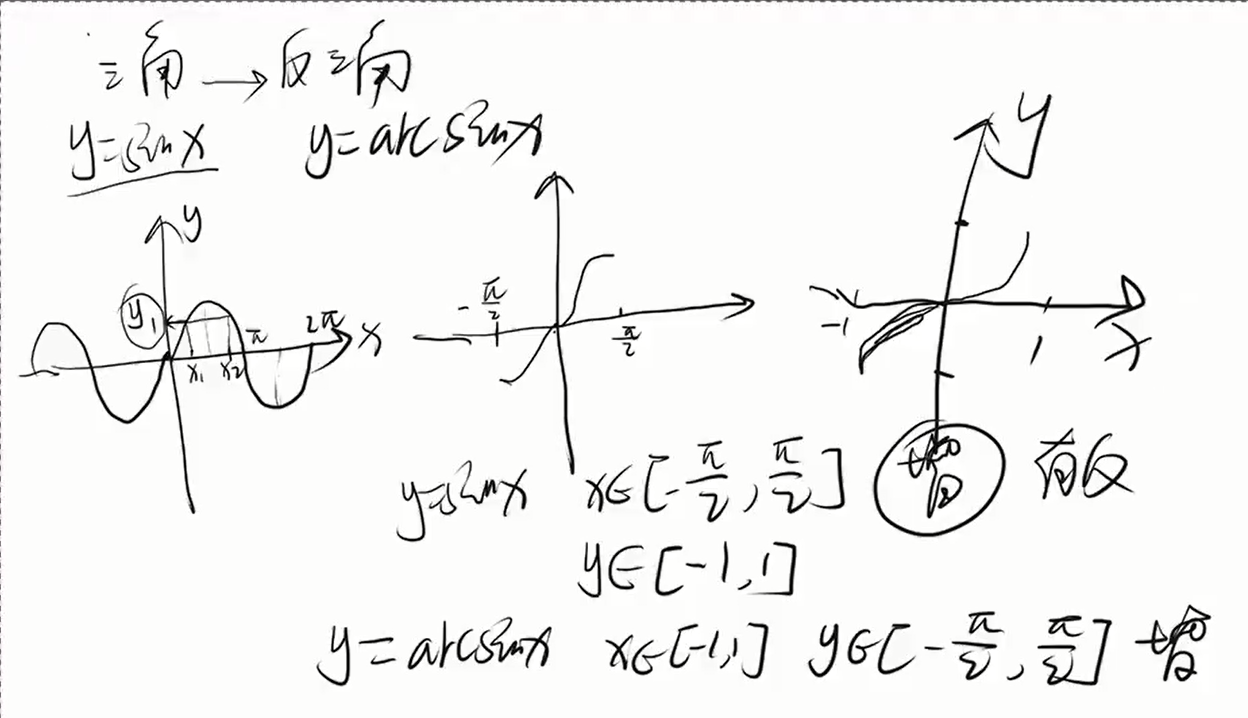 三角 → 反三角
y=sinx y=arcsinx
y
y₁ x₁ x₂ π 2π x
-π/2 π/2
y
-1 1 x
y=sinx x∈[-π/2,π/2] 增 有反
y∈[-1,1]
y=arcsinx x∈[-1,1] y∈[-π/2,π/2] 增